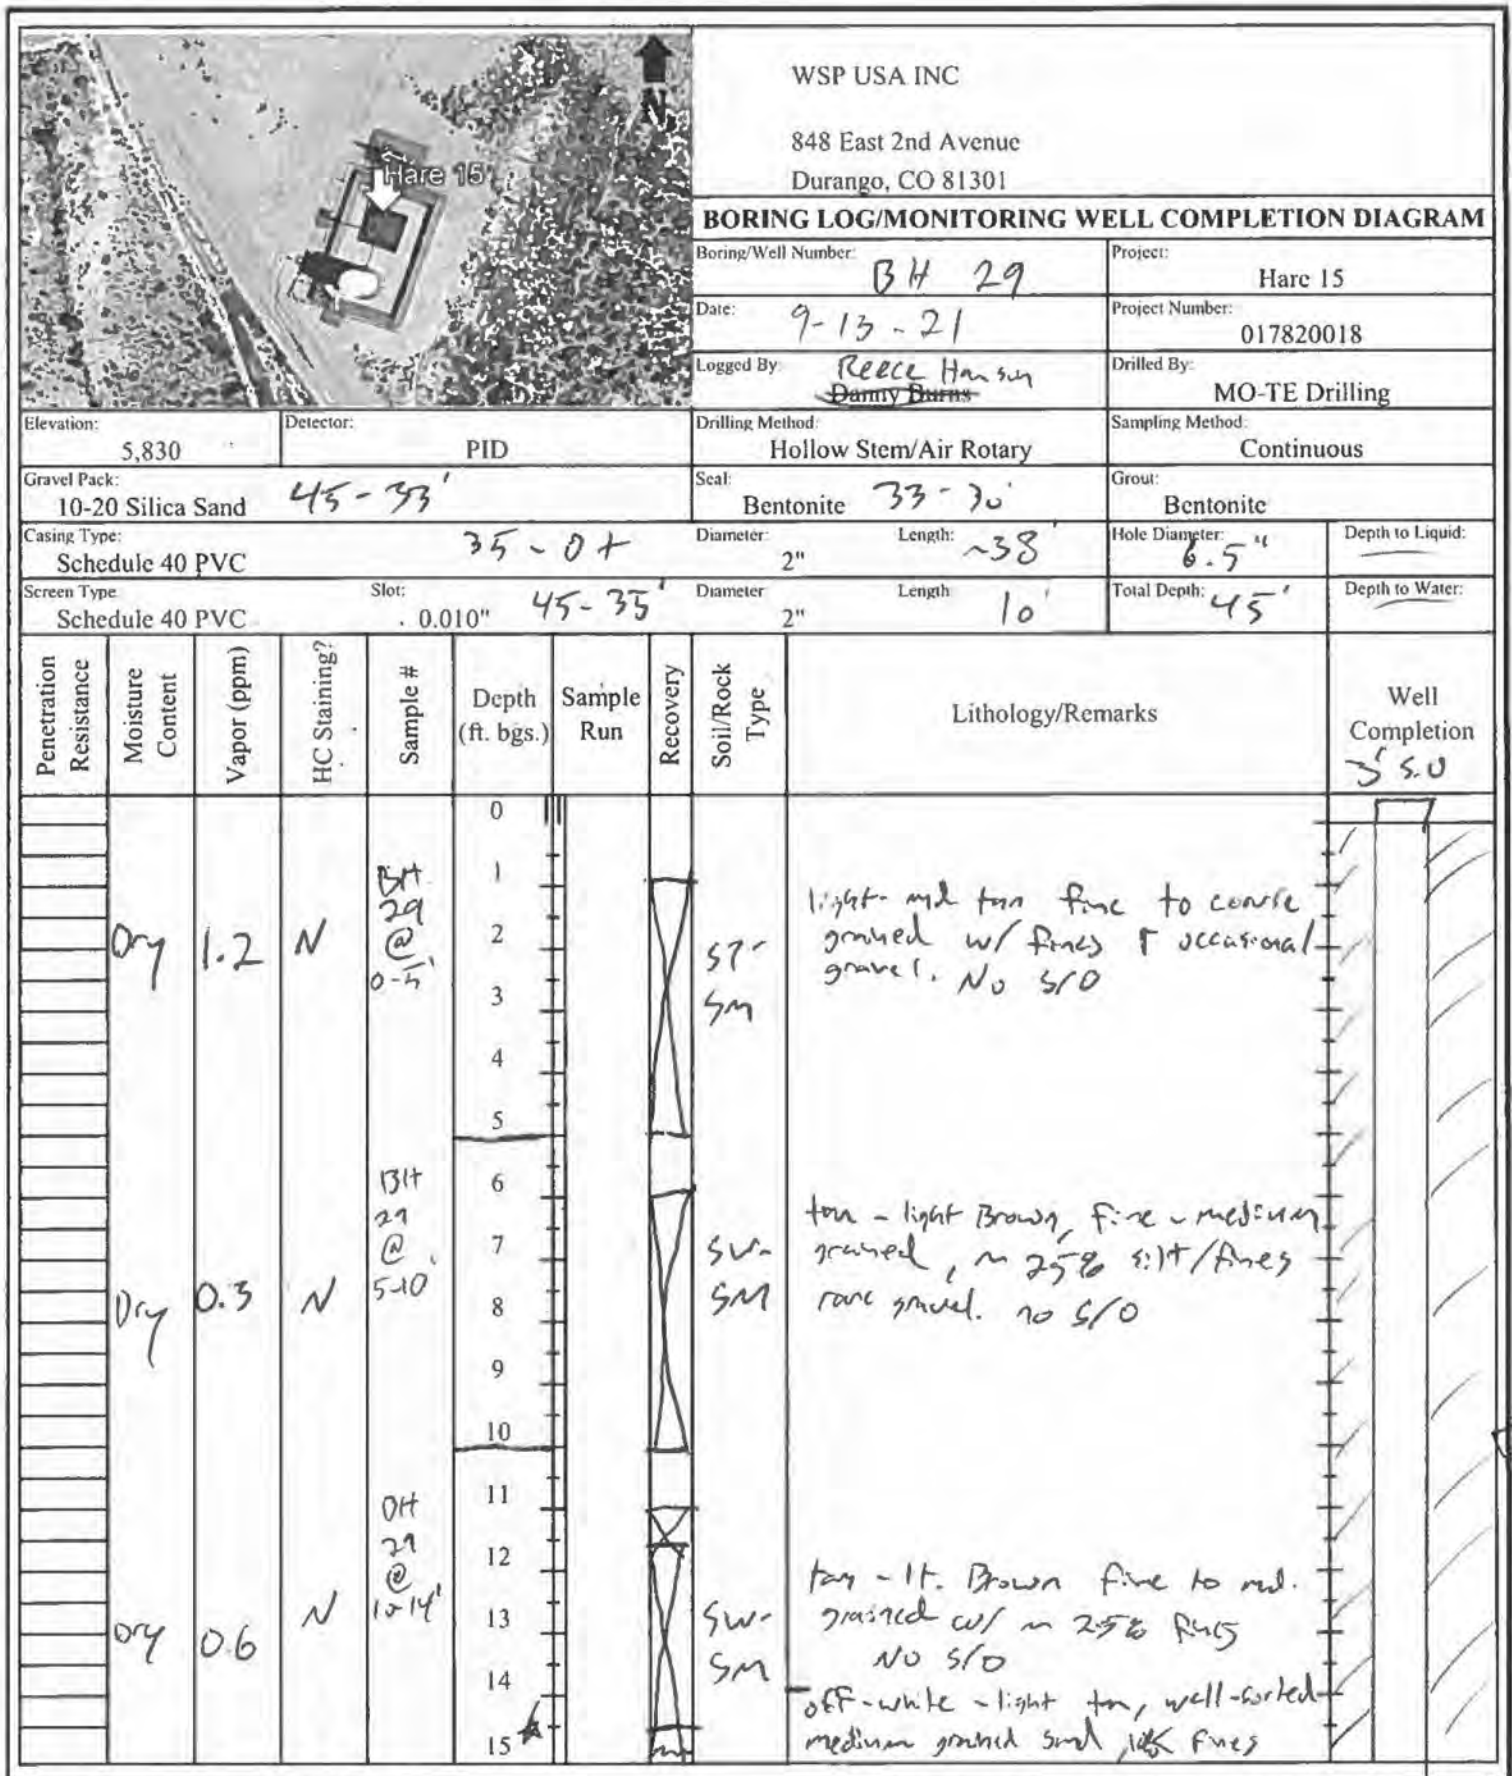 Hare 15
N
WSP USA INC
848 East 2nd Avenue
Durango, CO 81301
BORING LOG/MONITORING WELL COMPLETION DIAGRAM
Boring/Well Number: BH 29
Project: Hare 15
Date: 9-13-21
Project Number: 017820018
Logged By: Reece Hanson
Danny Burns
Drilled By: MO-TE Drilling
Elevation: 5,830
Detector: PID
Drilling Method: Hollow Stem/Air Rotary
Sampling Method: Continuous
Gravel Pack: 10-20 Silica Sand 45-33'
Seal: Bentonite 33-30'
Grout: Bentonite
Casing Type: Schedule 40 PVC 35-0+
Diameter: 2"
Length: ~38'
Hole Diameter: 6.5"
Depth to Liquid:
Screen Type Schedule 40 PVC
Slot: 0.010" 45-35'
Diameter 2"
Length 10'
Total Depth: 45'
Depth to Water:
Penetration Resistance
Moisture Content
Vapor (ppm)
HC Staining?
Sample #
Depth (ft. bgs.)
Sample Run
Recovery
Soil/Rock Type
Lithology/Remarks
Well Completion
3' S.U
0
1
BH
29
@
0-5'
2
Dry 1.2 N
SP-
SM
light- md tan fine to corse
grained w/ fines + occasional
gravel. No S/O
3
4
5
6
BH
29
@
5-10'
7
Dry 0.3 N
SW-
SM
tan - light Brown, fine - medium
grained, ~ 25% silt/fines
rare gravel. no S/O
8
9
10
11
BH
29
@
10-14'
12
13
Dry 0.6 N
SW-
SM
tan - lt. Brown fine to md.
grained w/ ~ 25% fines
NO S/O
14
off-white - light tan, well-sorted
medium grained sand fines
15